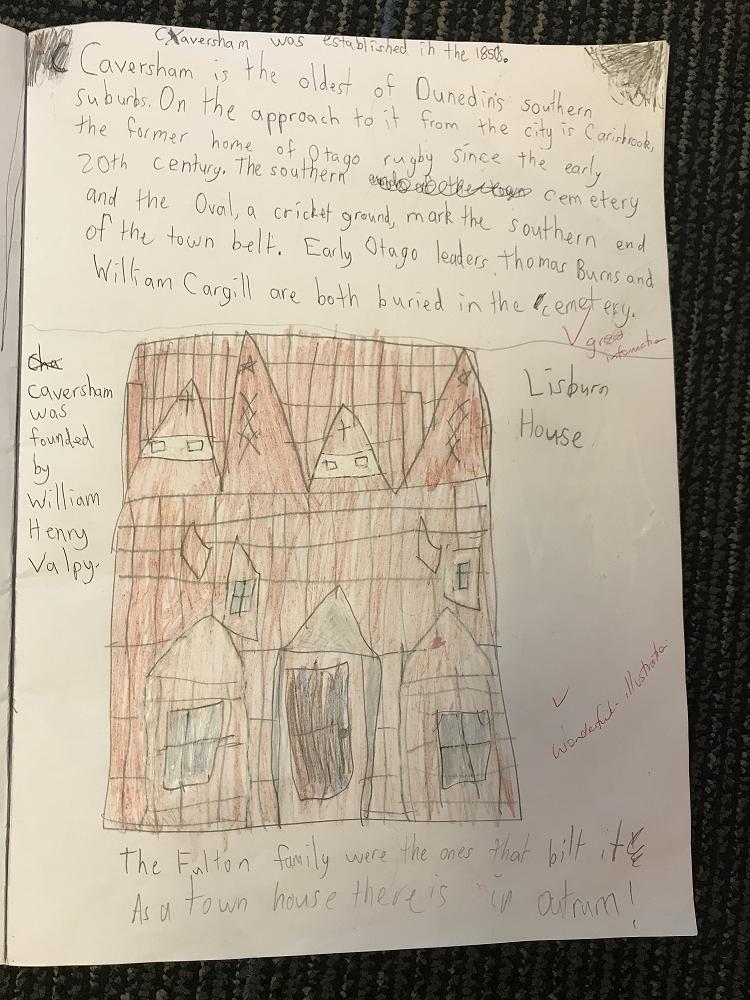 Caversham was established in the 1850s.
Caversham is the oldest of Dunedin's southern
suburbs. On the approach to it from the city is Carisbrook,
the former home of Otago rugby since the early
20th century. The southern cemetery
and the Oval, a cricket ground, mark the southern end
of the town belt. Early Otago leaders, Thomas Burns and
William Cargill are both buried in the cemetery.
great
information
Caversham
was
founded
by
William
Henry
Valpy.
Lisburn
House
Wonderful illustration
The Fulton family were the ones that bilt it
As a town house there is in outrum!